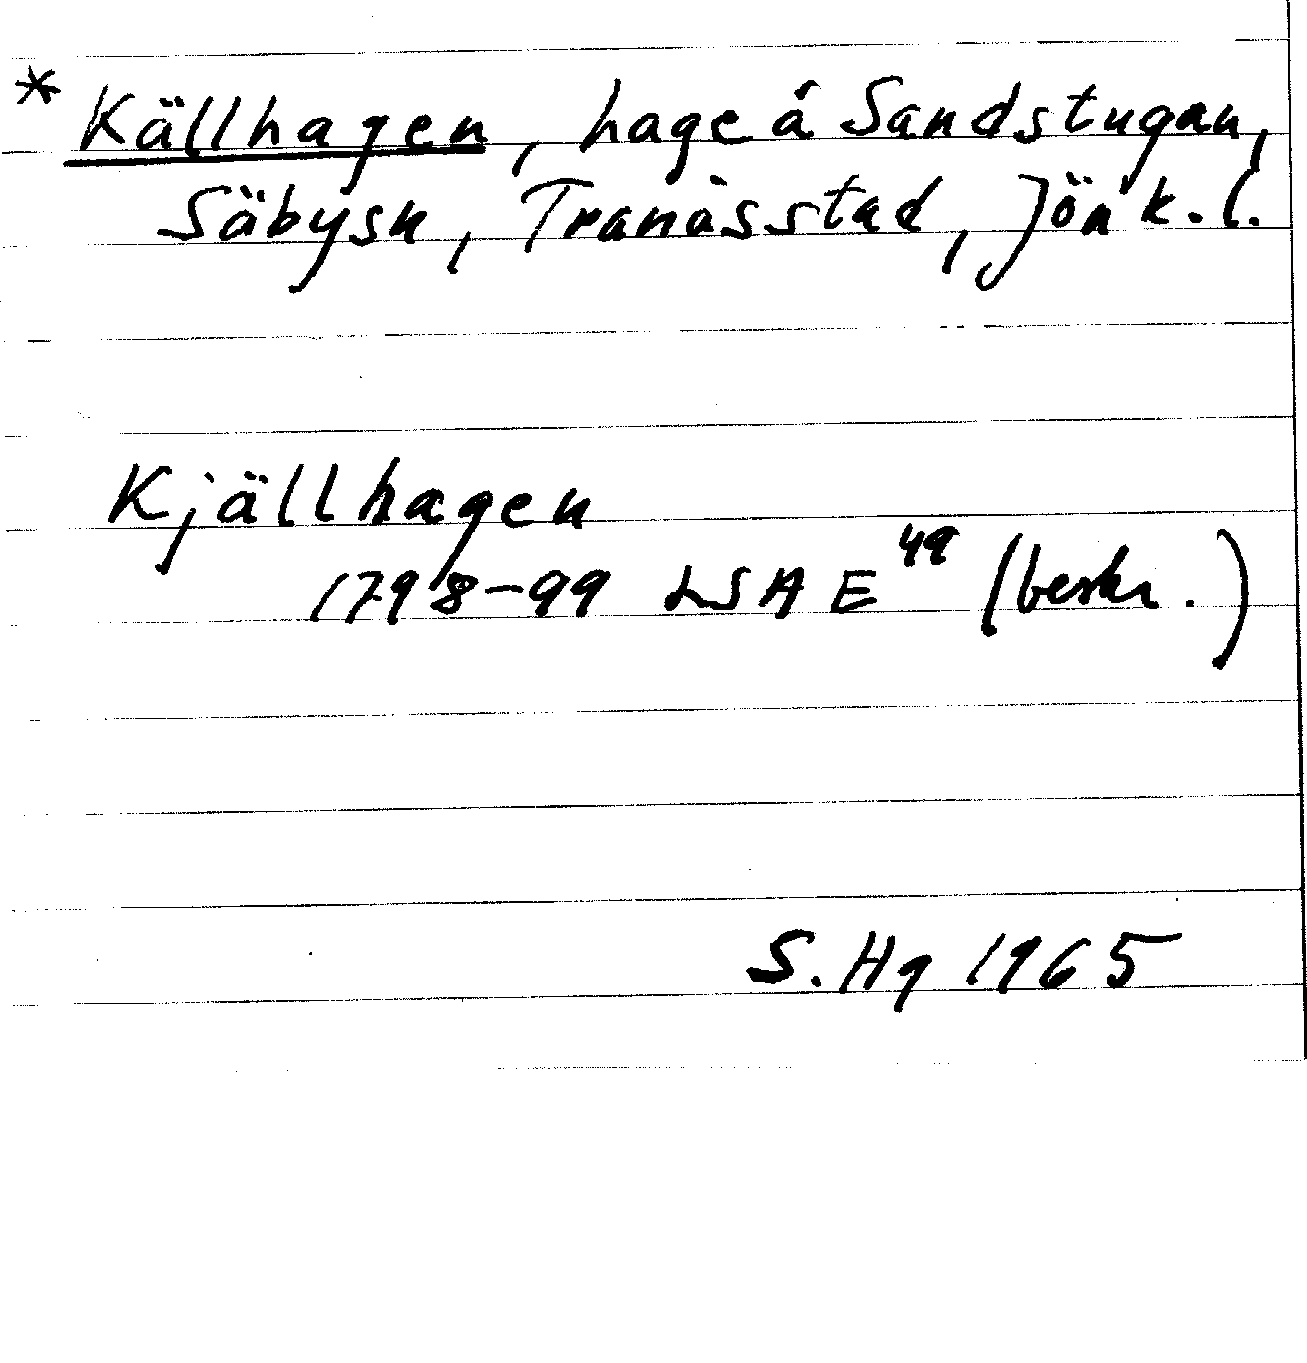 * Källhagen, hage å Sandstugan,
Säbysn, Tranås stad, Jönk. l.
Kjällhagen
1798-99 LSA E49 (beskr.)
S. Hg 1965